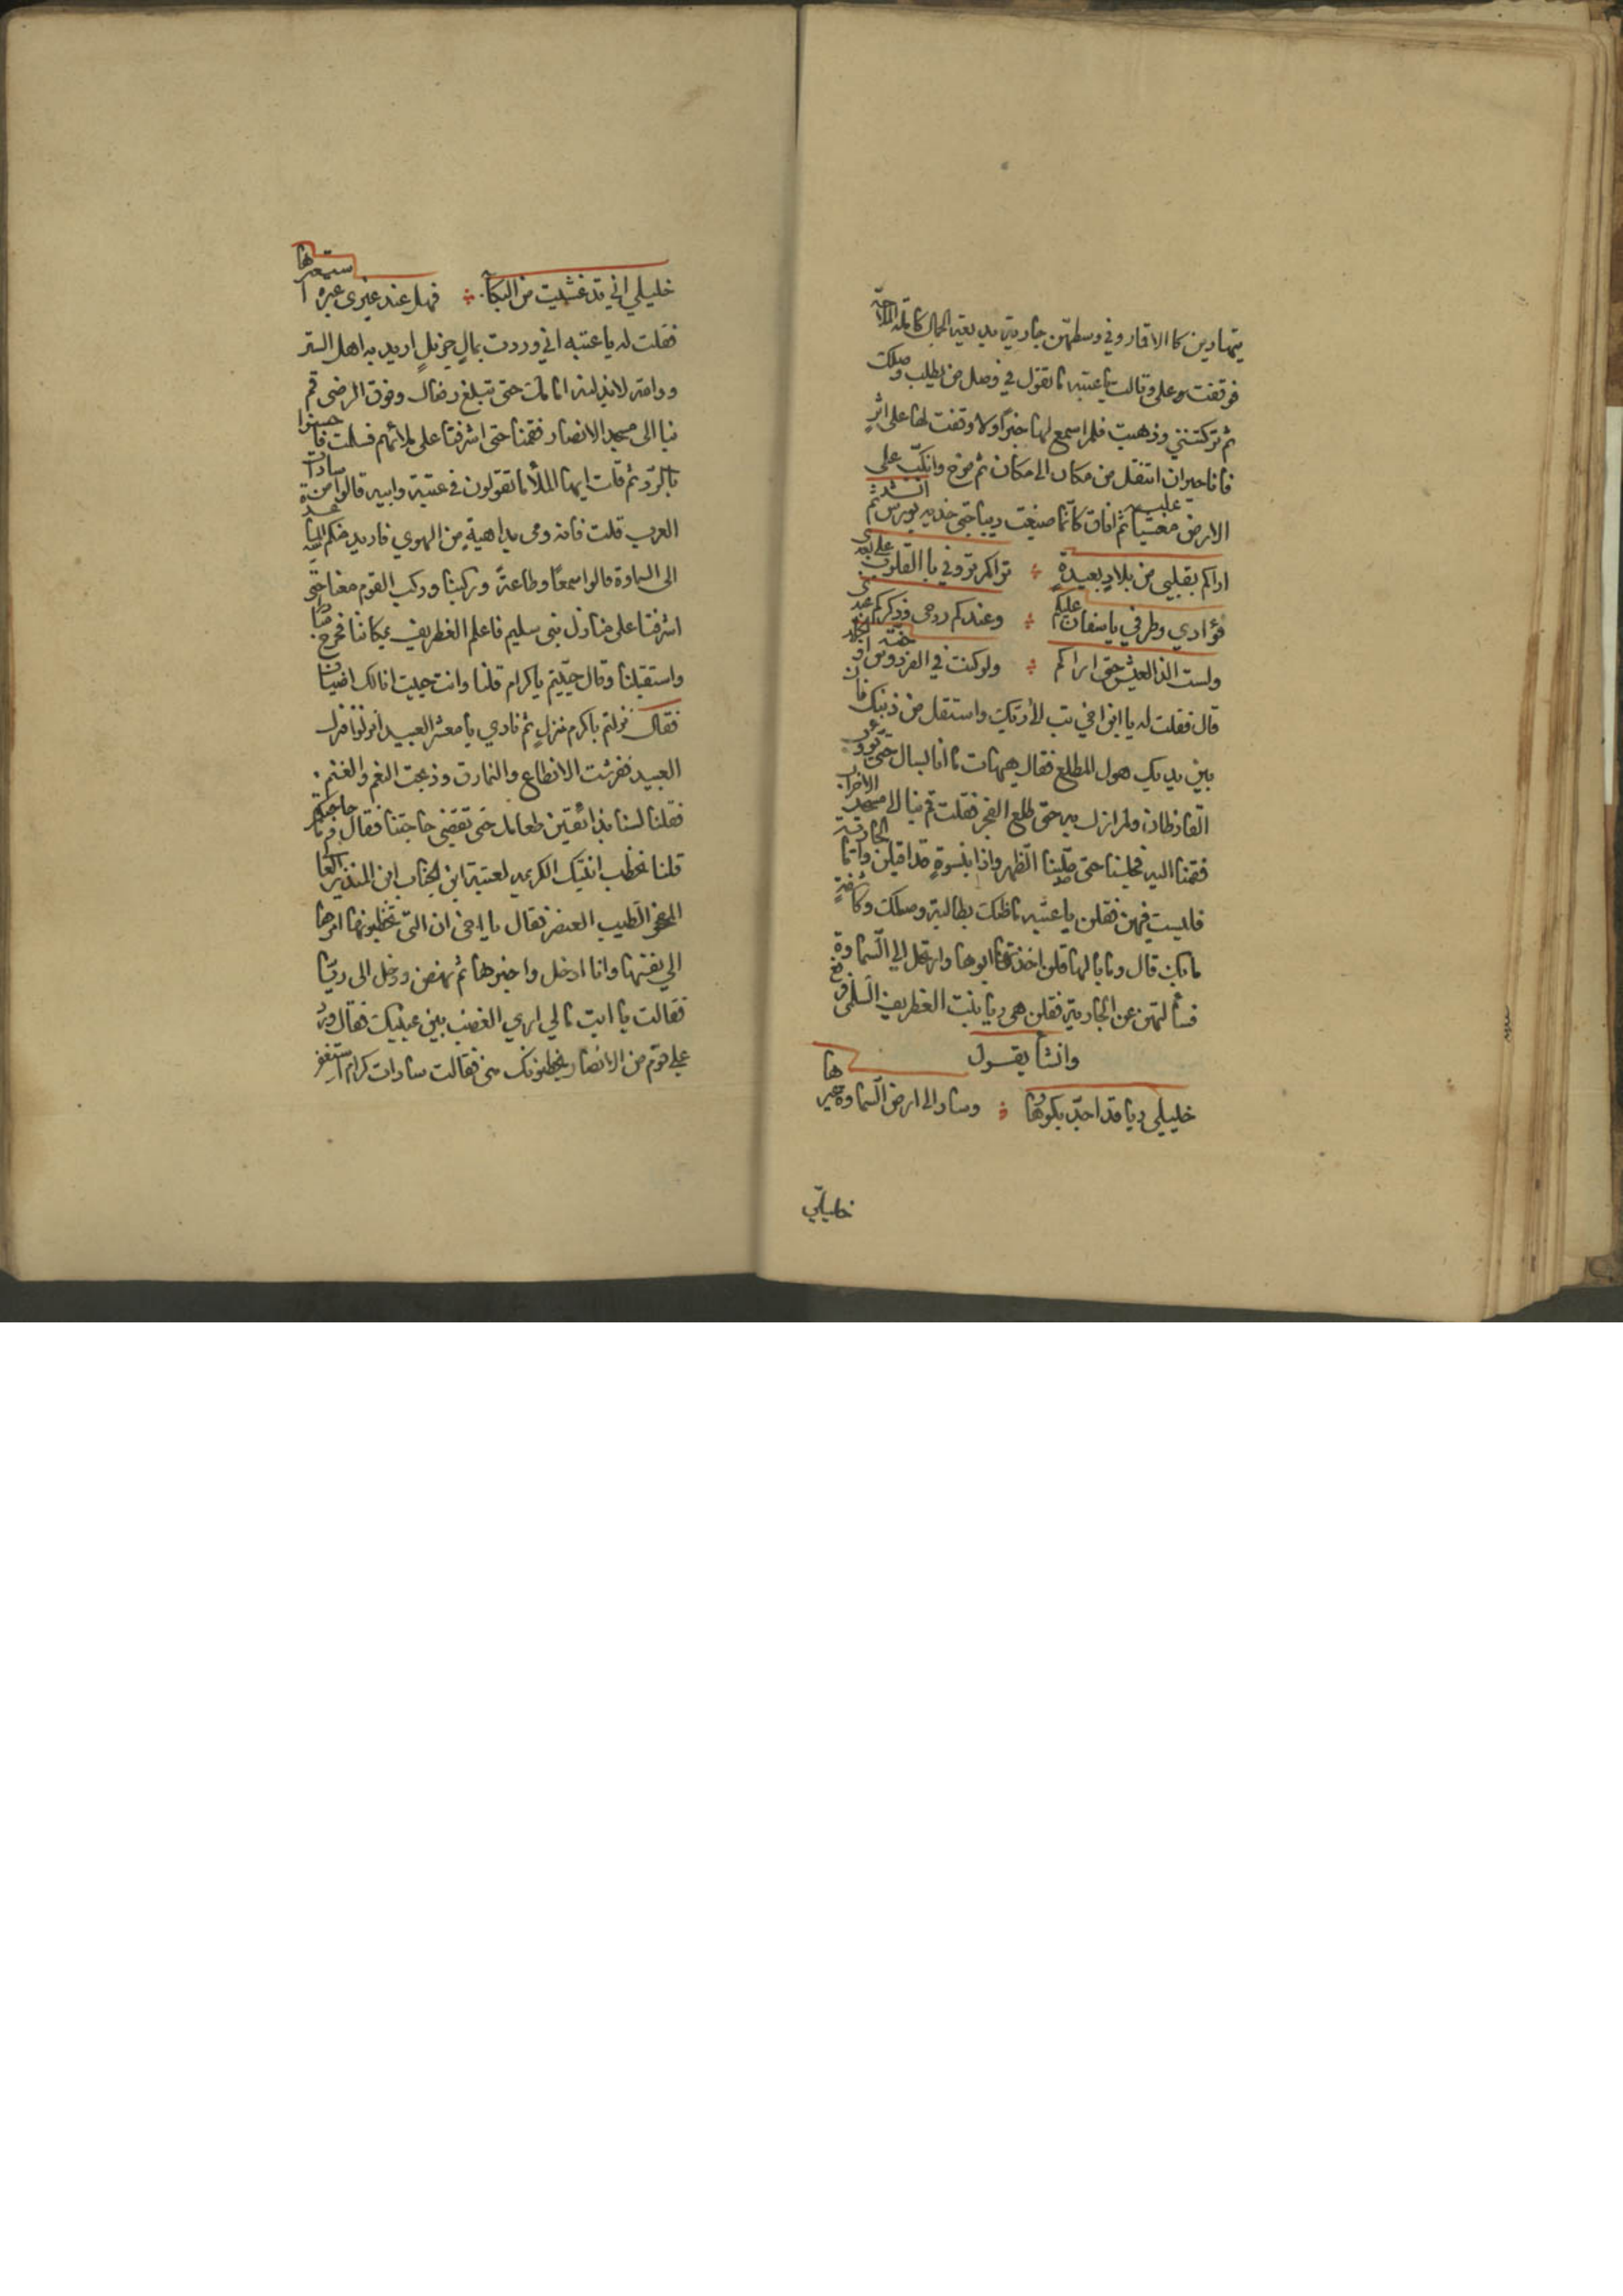 يتهادين كما الاقمار وفي وسطهن جارية بديعة الجمال كاملة الملاحة
فوقفت علي وقالت يا عتبه ما تقول في وصل من يطلب وصلك
ثم تركتني وذهبت فلم اسمع لها خبرًا ولا وقفت لها على اثرٍ
فانا حيران انتقل من مكان الى مكان ثم صرخ وانكب على
الارض مغشيا عليه ثم افاق كانما صبغت ديباجتي خديه بورس ثم انشد
اراكم بقلبي من بلادٍ بعيدةٍ ؞ تراكم تروني بالقلوب على بعدى
فؤادي وطرفي ياسفان عليكم ؞ وعندكم روحي وذكركم عندى
ولست الذ العيش حتى اراكم ؞ ولو كنت في الفردوس او جنة الخلد
قال فقلت له يا ابن اخي تب لأربك واستقل من ذنبك فان
بين يديك هول المطلع فقال هيهات ما انا بسال حتى يؤوب
القارظان ولم ازل به حتى طلع الفجر فقلت قم بنا الى مسجد الاحزاب
فقمنا اليه فجلسنا حتى صلينا الظهر واذا بنسوةٍ قد اقبلن واما الجارية
فليست فيهن فقلن يا عتبه ما ظنك بطالبة وصلك وكاشفةٍ
ما بك قال وما بالها قلن اخذها ابوها وارتحل الي السماوة
فسألتهن عن الجارية فقلن هى ريا بنت الغطريف السلمى فرفع
وانشأ يقول
خليلي ريا قد اجد بكورها ؞ وسار الى ارض السماوة عيرها
خليلي
خليلي اني قد غشيت من البكآ ؞ فهل عند غيرى عبرة استعيرها
فقلت له يا عتبه اني وردت بمالٍ جزيلٍ اريد به اهل الستر
ووالله لابذلنه امامك حتى تبلغ رضاك وفوق الرضى قم
بنا الى مسجد الانصار فقمنا حتى اشرفنا على ملائهم فسلمت فاحسنوا
بالرد ثم قلت ايها الملأ ما تقولون في عتبة وابيه قالوا من سادات
العرب قلت فانه رمى بداهية من الهوي فاريد منكم المساعدة
الى السماوة قالوا سمعًا وطاعةً وركبنا وركب القوم معنا حتى
اشرفنا على منازل بنى سليم فاعلم الغطريف بمكاننا فخرج مبادرا
واستقبلنا وقال حييتم يا كرام قلنا وانت حييت انا لك اضياف
فقال نزلتم بأكرم منزلٍ ثم نادي يا معشر العبيد انزلوا فنزلت
العبيد ففرشت الانطاع والنمارق وذبحت النعم والغنم
فقلنا لسنا بذائقين طعامك حتى تقضي حاجتنا فقال وما حاجتكم
قلنا نخطب ابنتك الكريمه لعتبة ابن الحباب ابن المنذر العالى
الفخر الطيب العنصر فقال يا اخي ان التي تخطبونها امرها
الي نفسها وانا ادخل واخبرها ثم نهض ودخل الى ريا
فقالت يا ابت مالي اري الغضب بين عينيك فقال ورد
علي قوم من الانصار يخطبونك منى فقالت سادات كرام استغفر